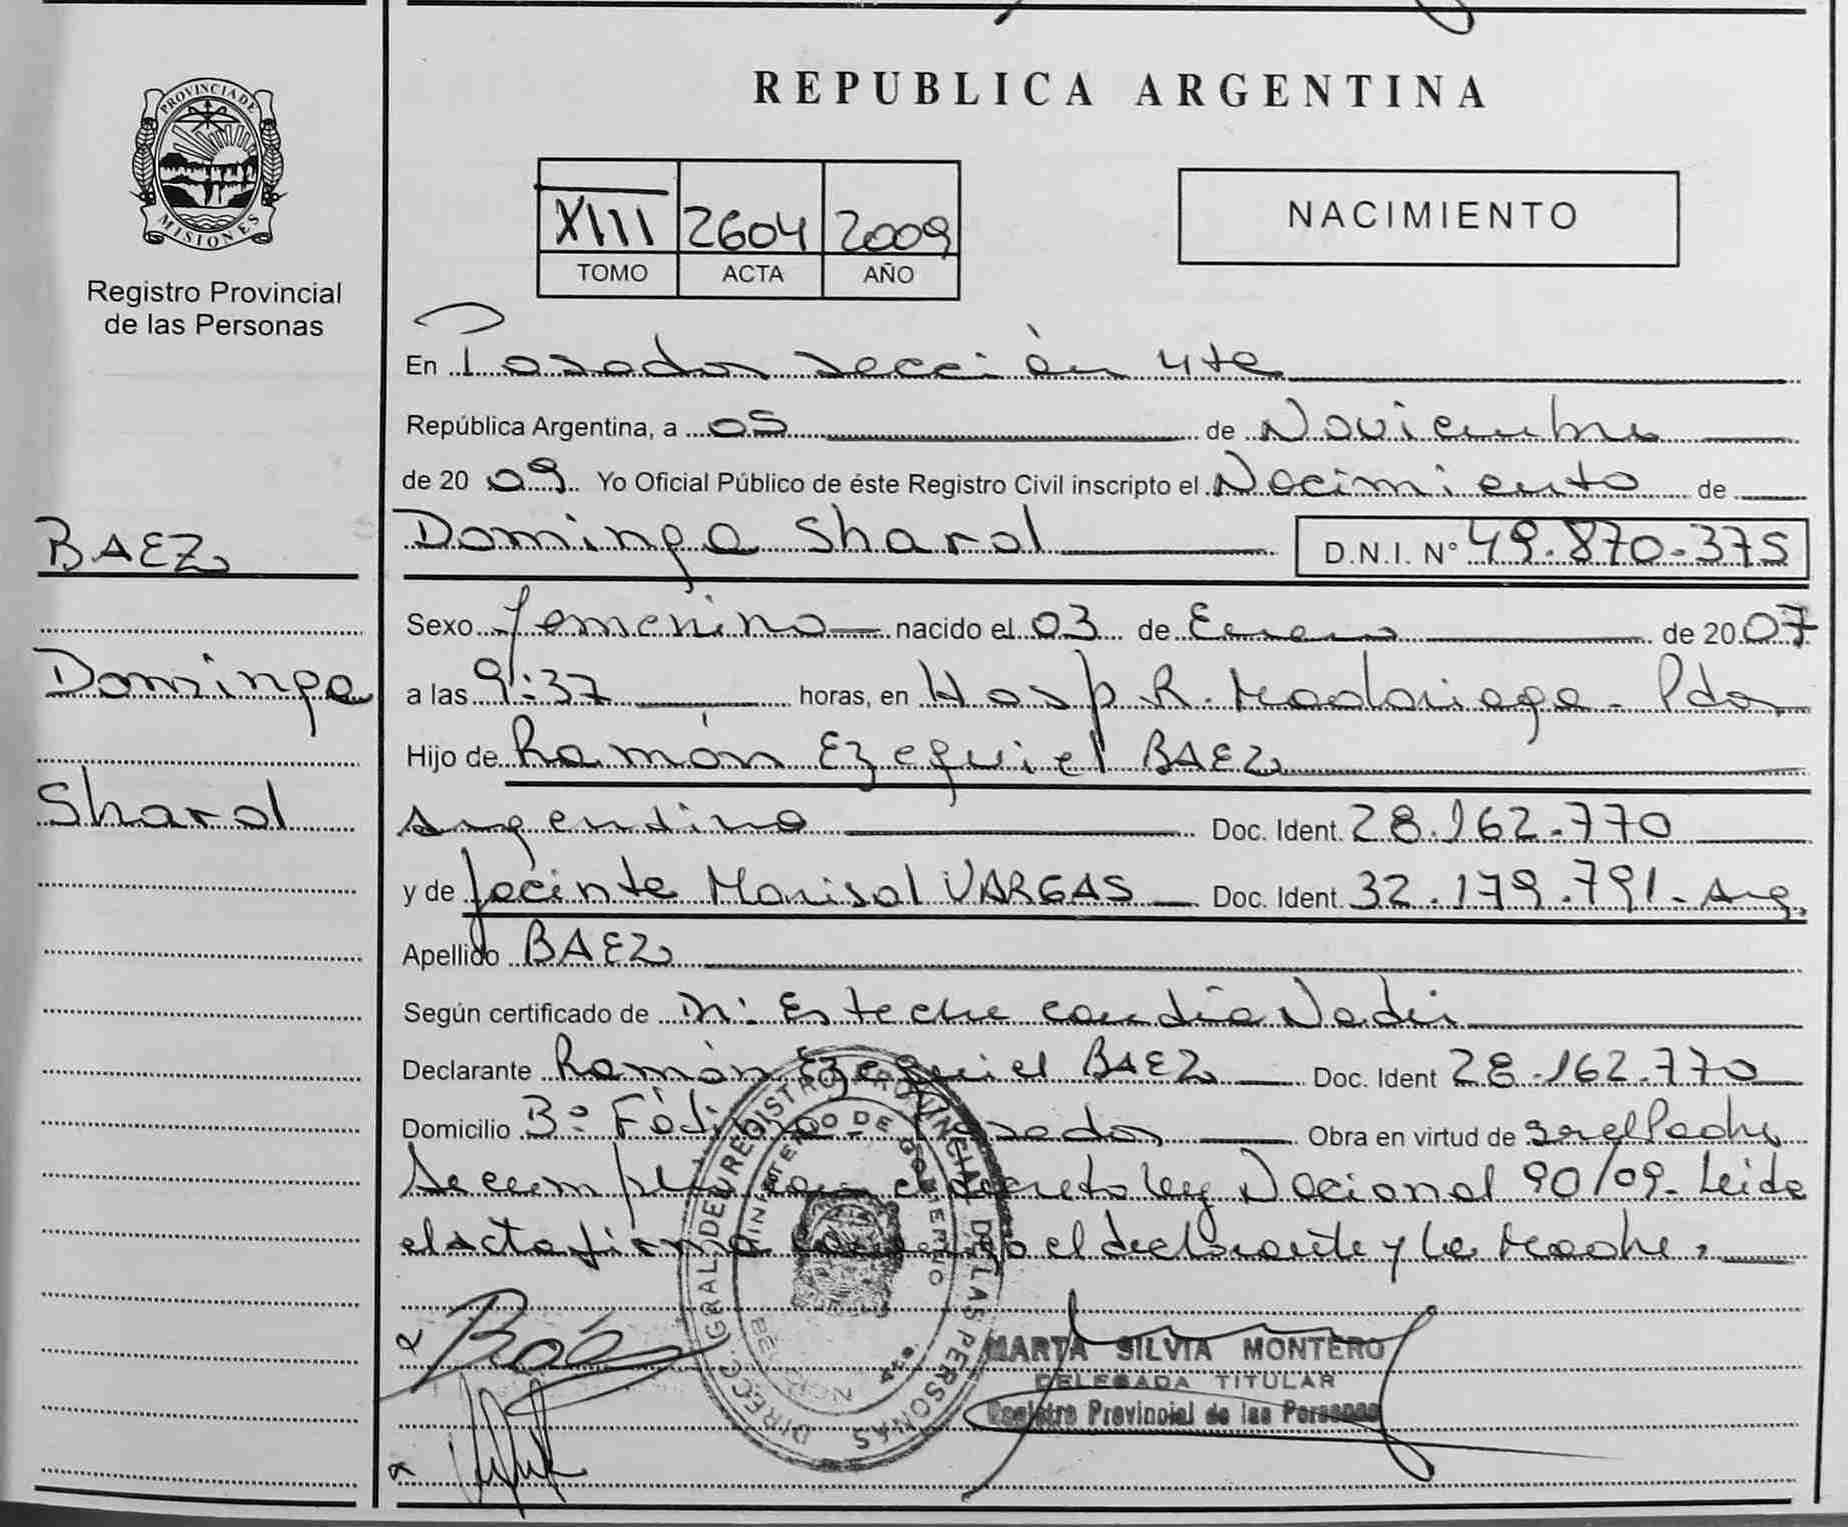 PROVINCIA DE
MISIONES
Registro Provincial
de las Personas
REPUBLICA ARGENTINA
XIII 2604 2009
TOMO ACTA AÑO
NACIMIENTO
En Posadas sección 4ta
República Argentina, a 05 de Noviembre
de 2009. Yo Oficial Público de éste Registro Civil inscripto el Nacimiento de
BAEZ
Dominga Sharol D.N.I. N° 49.870.375
Sexo femenino nacido el 03 de Enero de 2007
Dominga
a las 9:37 horas, en Hosp. R. Madariaga - Pdas
Hijo de Ramón Ezequiel BAEZ
Sharol
Argentino Doc. Ident. 28.162.770
y de Jacinta Marisol VARGAS Doc. Ident. 32.179.791 - Arg.
Apellido BAEZ
Según certificado de Esteche Nadir
Declarante Ramón Ezequiel BAEZ Doc. Ident 28.162.770
Domicilio B° Posadas Obra en virtud de
Se cumple con el decreto ley Nacional 90/09. Leida
el acta firma el declarante y la Madre.
DIRECC. GRAL. DEL REGISTRO PROVINCIAL DE LAS PERSONAS
MINISTERIO DE GOBIERNO
MARTA SILVIA MONTERO
DELEGADA TITULAR
Registro Provincial de las Personas